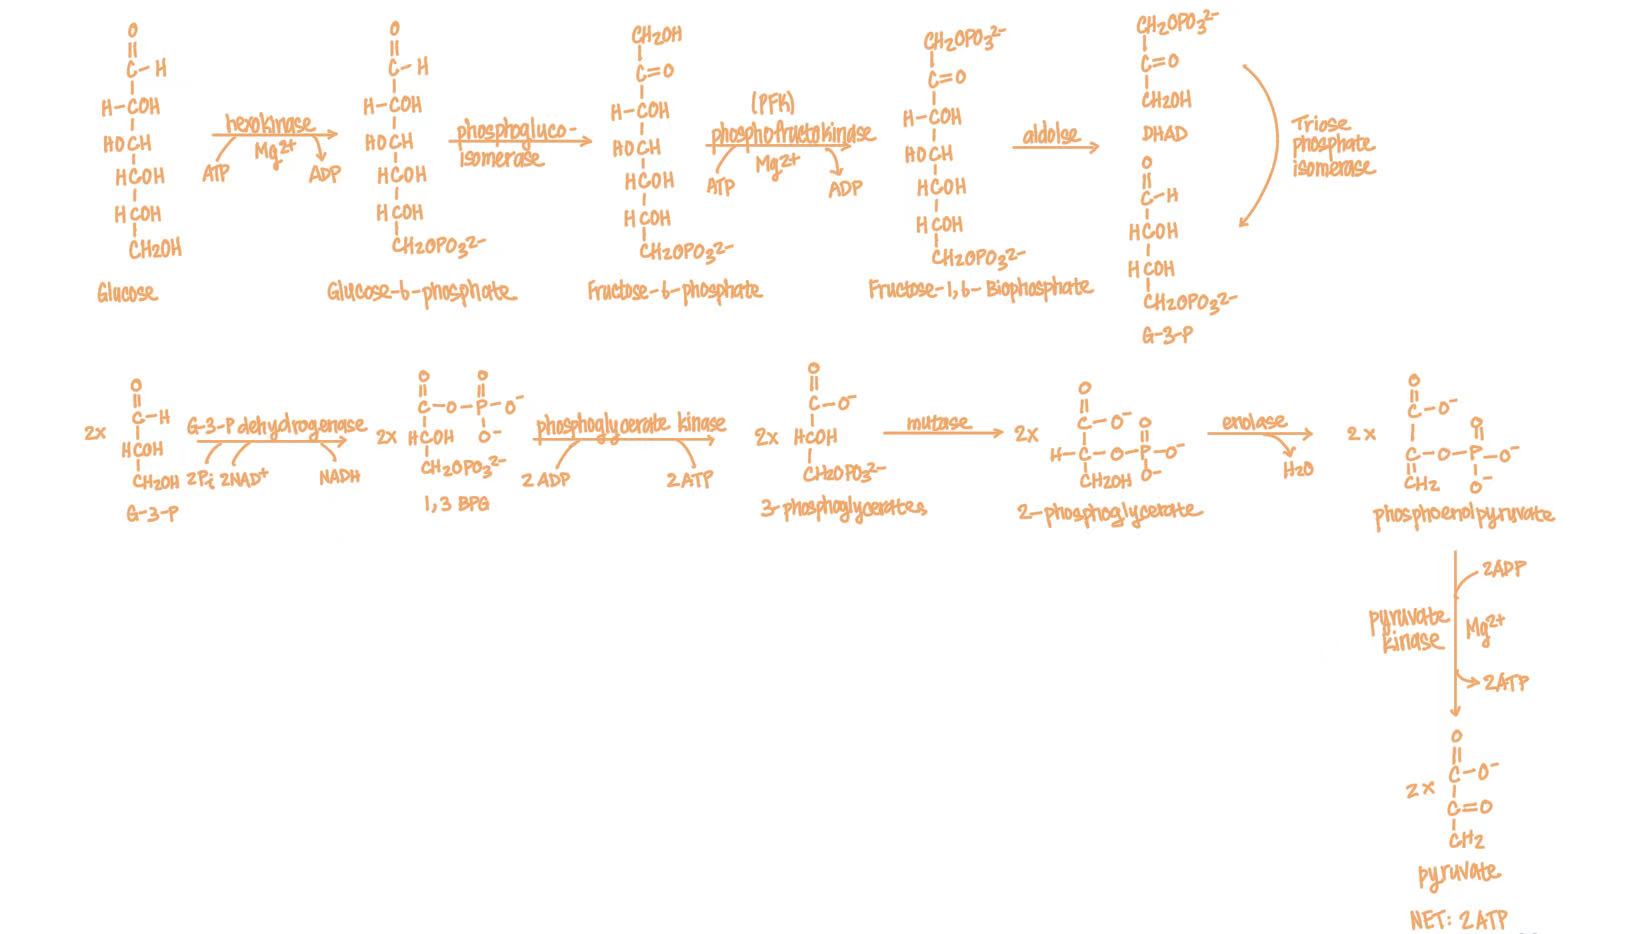 O
C-H
H-COH
HOCH
HCOH
HCOH
CH2OH
Glucose
hexokinase
Mg2+
ATP
ADP
O
C-H
H-COH
HOCH
HCOH
HCOH
CH2OPO3 2-
Glucose-6-phosphate
phosphogluco-
isomerase
CH2OH
C=O
H-COH
HOCH
HCOH
HCOH
CH2OPO3 2-
Fructose-6-phosphate
(PFK)
phosphofructokinase
Mg2+
ATP
ADP
CH2OPO3 2-
C=O
H-COH
HOCH
HCOH
HCOH
CH2OPO3 2-
Fructose-1,6-Biophosphate
aldolse
CH2OPO3 2-
C=O
CH2OH
DHAD
O
C-H
HCOH
HCOH
CH2OPO3 2-
G-3-P
Triose
phosphate
isomerase
2x
O
C-H
HCOH
CH2OH
G-3-P
G-3-P dehydrogenase
2Pi 2NAD+
NADH
2x
O O
C-O-P-O-
HCOH O-
CH2OPO3 2-
1,3 BPG
phosphoglycerate kinase
2 ADP
2 ATP
2x
O
C-O-
HCOH
CH2OPO3 2-
3-phosphoglycerates
mutase
2x
O
C-O- O
H-C-O-P-O-
CH2OH O-
2-phosphoglycerate
enolase
H2O
2x
O
C-O- O
C-O-P-O-
CH2 O-
phosphoenolpyruvate
2ADP
pyruvate
kinase
Mg2+
2ATP
2x
O
C-O-
C=O
CH2
pyruvate
NET: 2 ATP